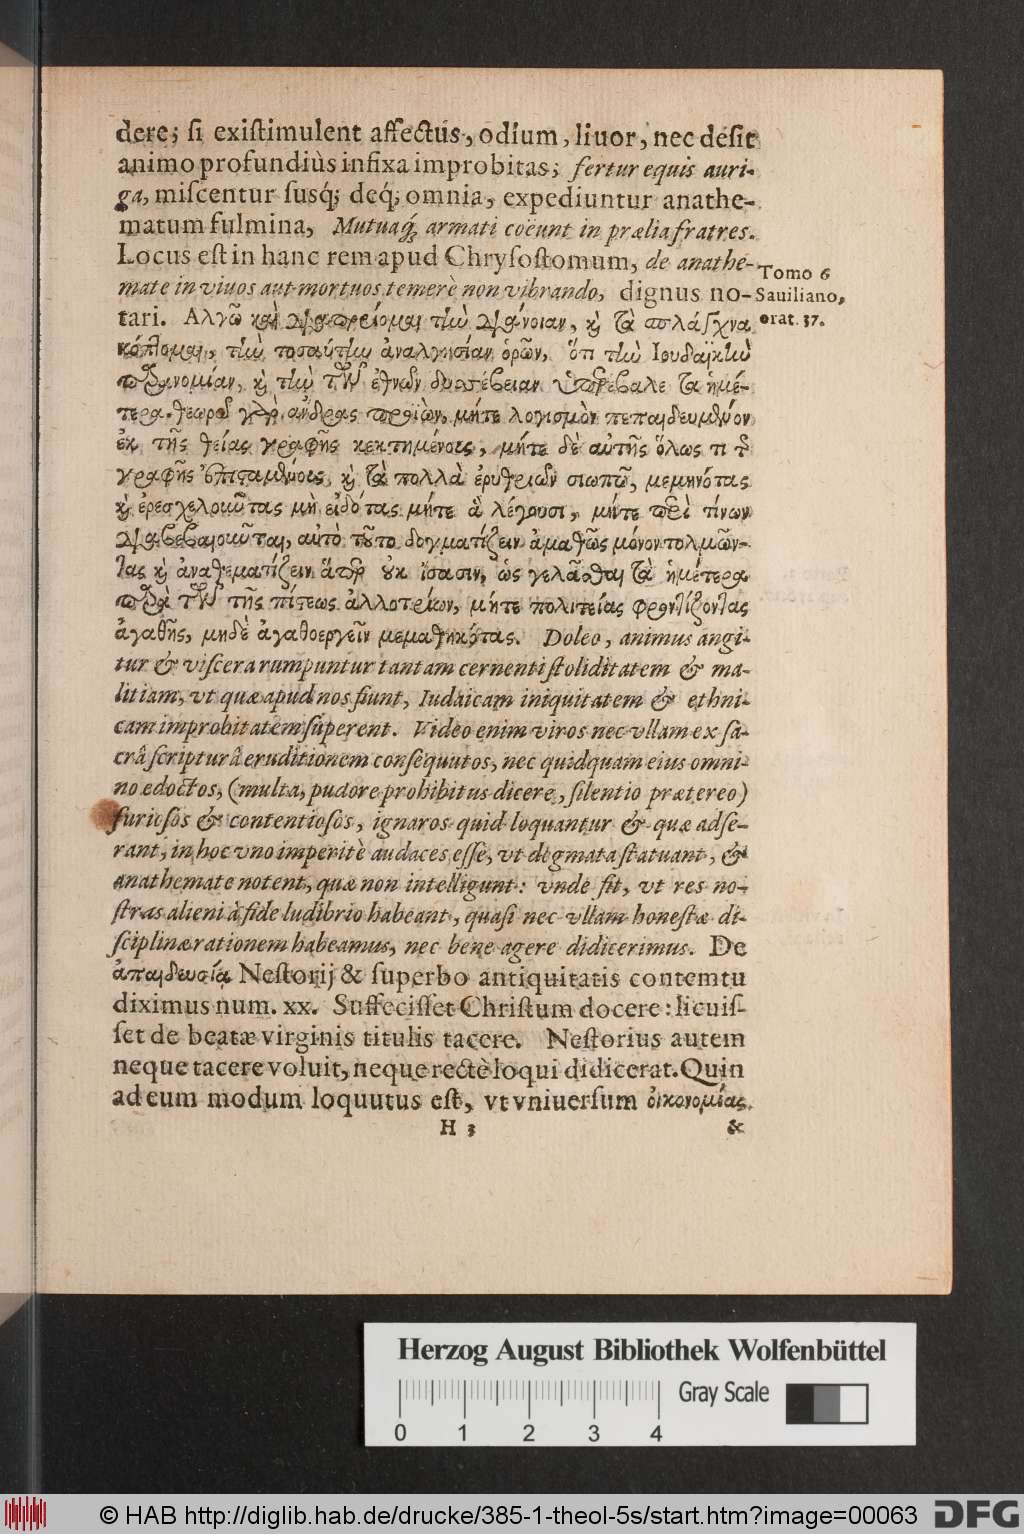 dere; si existimulent affectus, odium, liuor, nec desit
animo profundiùs infixa improbitas; fertur equis auri-
ga, miscentur susq́; deq́; omnia, expediuntur anathe-
matum fulmina, Mutuaq́; armati coëunt in prælia fratres.
Locus est in hanc rem apud Chrysostomum, de anathe-
mate in viuos aut mortuos temerè non vibrando, dignus no-
Tomo 6
Sauiliano,
orat. 37.
tari. Αλγῶ καὶ διαπρείομαι τὴν διάνοιαν, κỳ τὰ σπλάγχνα
κόπτομαι, τὴν τοσαύτην ἀναλγησίαν ὁρῶν, ὅτι τὴν Ιουδαϊκὴν
παρανομίαν, κỳ τὴν τῶν ἐθνῶν δυσσέβειαν ὑπερέβαλε τὰ ἡμέ-
τερα. θεωρῶ γὰρ ἄνδρας μήτε λογισμὸν πεπαιδευμένον
ἐκ τῆς θείας γραφῆς κεκτημένους, μήτε δὲ αὐτῆς ὅλως τι τ̃
γραφῆς ἐπισταμένους, κỳ τὰ πολλὰ ἐρυθριῶν σιωπῶ, μεμηνότας
κỳ ἐρεσχελοιωῦτας μὴ εἰδότας μήτε ἃ λέγουσι, μήτε περὶ τίνων
διαβεβαιοιωῦται, αὐτὸ τοῦτο δογματίζειν ἀμαθῶς μόνον τολμῶν-
τας κỳ ἀναθεματίζειν ἅπερ ουκ ἴσασιν, ὡς γελᾶσθαι τὰ ἡμέτερα
παρὰ τῶν τῆς πίστεως ἀλλοτρίων, μήτε πολιτείας φροντίζοντας
ἀγαθῆς, μηδὲ ἀγαθοεργεῖν μεμαθηκότας. Doleo, animus angi-
tur & viscera rumpuntur tantam cernenti stoliditatem & ma-
litiam, vt quæ apud nos fiunt, Iudaicam iniquitatem & ethni-
cam improbitatem superent. Video enim viros nec vllam ex sa-
crâ scripturâ eruditionem consequutos, nec quidquam eius omni-
no edoctos, (multa, pudore prohibitus dicere, silentio prætereo)
furiosos & contentiosos, ignaros quid loquantur & quæ adse-
rant, in hoc vno imperitè audaces esse, vt dogmata statuant, &
anathemate notent, quæ non intelligunt: vnde fit, vt res no-
stras alieni à fide ludibrio habeant, quasi nec vllam honestæ di-
sciplinæ rationem habeamus, nec bene agere didicerimus. De
ἀπαιδευσίᾳ Nestorij & superbo antiquitatis contemtu
diximus num. xx. Suffecisset Christum docere: licuis-
set de beatæ virginis titulis tacere. Nestorius autem
neque tacere voluit, neque rectè loqui didicerat. Quin
ad eum modum loquutus est, vt vniuersum οἰκονομίας
H 3
&
Herzog August Bibliothek Wolfenbüttel
Gray Scale
0 1 2 3 4
© HAB http://diglib.hab.de/drucke/385-1-theol-5s/start.htm?image=00063
DFG